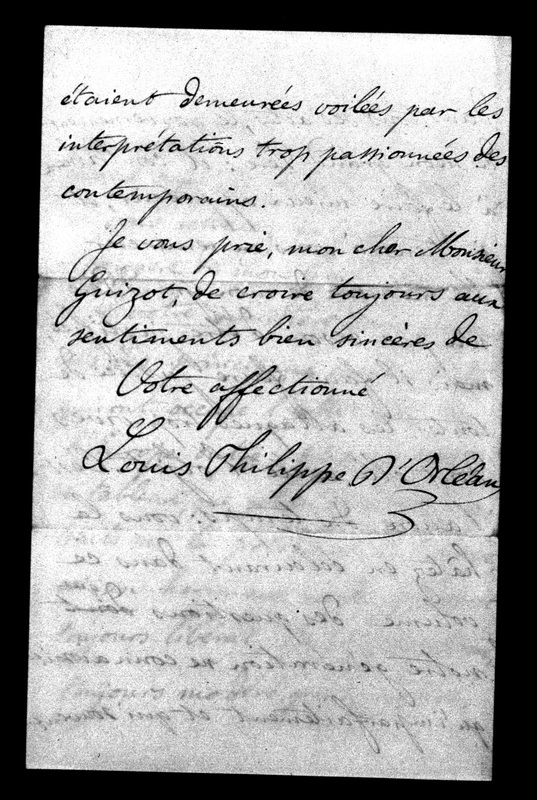 étaient demeurées voilées par les
interprétations trop passionnées des
contemporains.
Je vous prie, mon cher Monsieur
Guizot, de croire toujours aux
sentiments bien sincères de
Votre affectionné
Louis Philippe d'Orléans